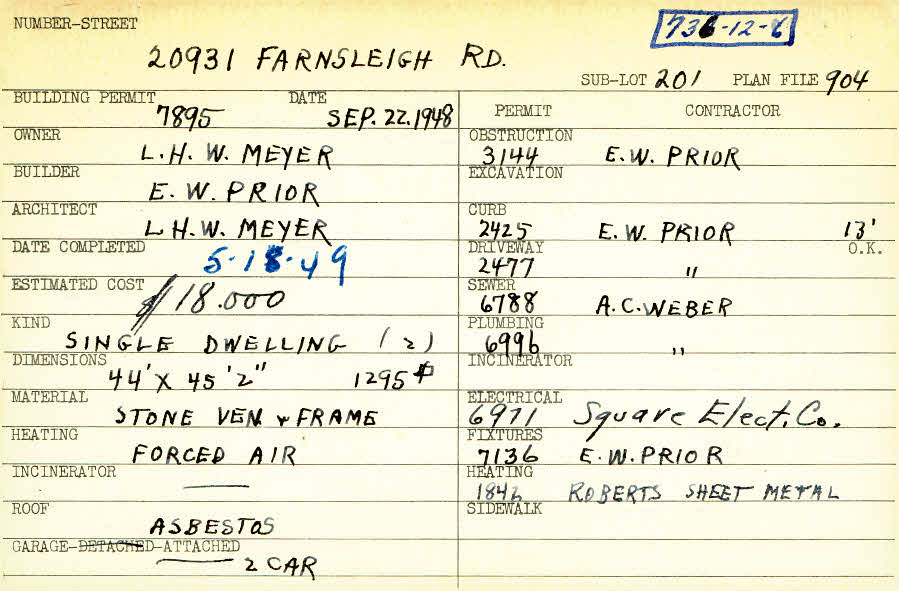 NUMBER-STREET
736-12-6
20931 FARNSLEIGH RD.
SUB-LOT 201 PLAN FILE 904
BUILDING PERMIT DATE
7895 SEP. 22. 1948
OWNER
L. H. W. MEYER
BUILDER
E. W. PRIOR
ARCHITECT
L H. W. MEYER
DATE COMPLETED
5-18-49
ESTIMATED COST
$18.000
KIND
SINGLE DWELLING (2)
DIMENSIONS
44' X 45'2" 1295
MATERIAL
STONE VEN & FRAME
HEATING
FORCED AIR
INCINERATOR
—
ROOF
ASBESTOS
GARAGE-DETACHED-ATTACHED
2 CAR
PERMIT CONTRACTOR
OBSTRUCTION
3144 E. W. PRIOR
EXCAVATION
CURB
2425 E. W. PRIOR 13'
DRIVEWAY O.K.
2477 "
SEWER
6788 A. C. WEBER
PLUMBING
6996 "
INCINERATOR
ELECTRICAL
6971 Square Elect. Co.
FIXTURES
7136 E. W. PRIOR
HEATING
1842 ROBERTS SHEET METAL
SIDEWALK